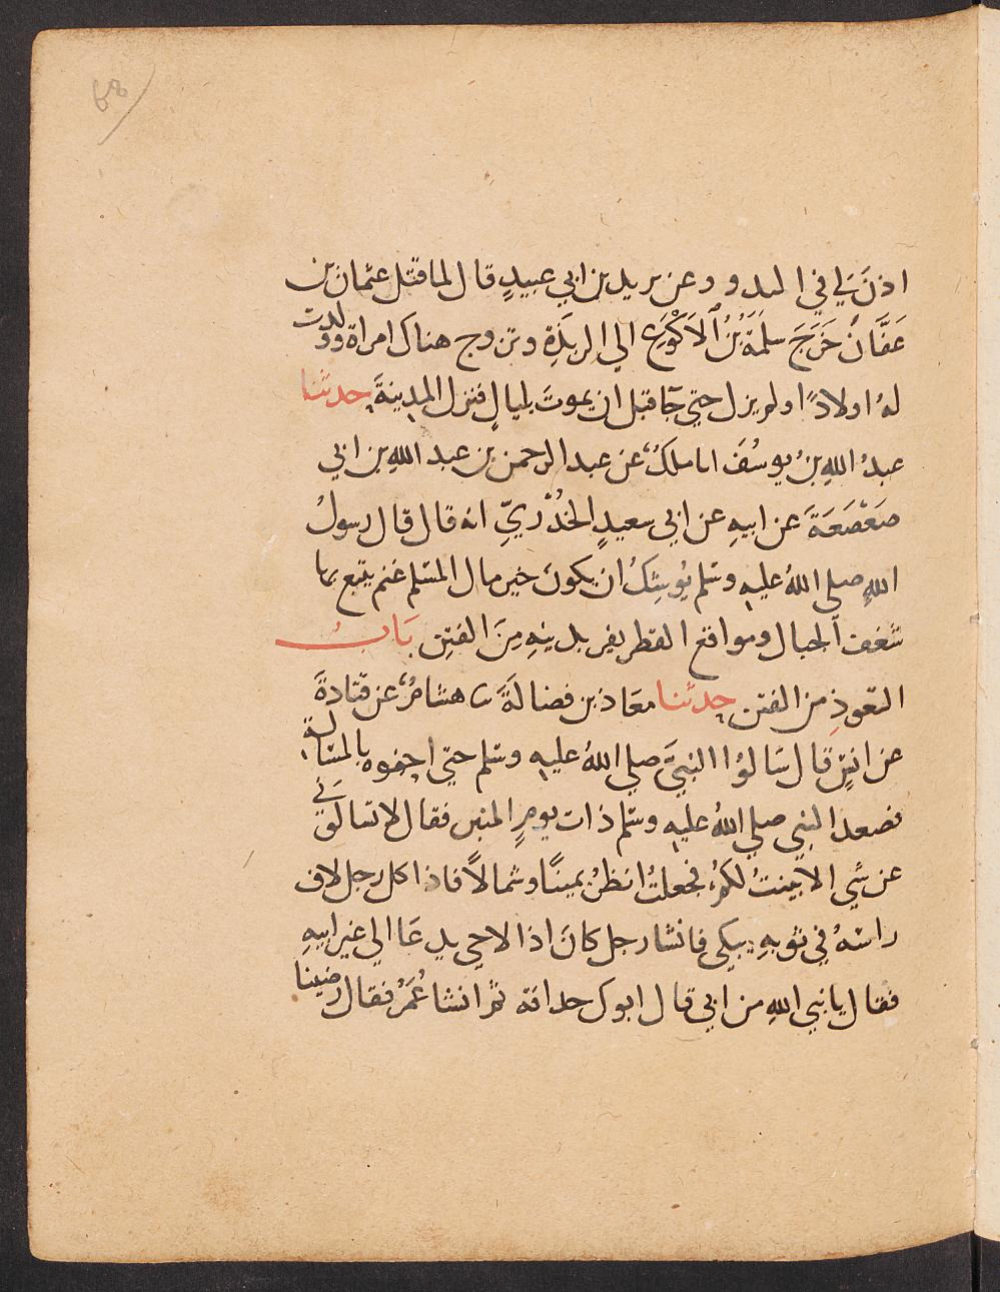 اذنَ لي في البدو وعن يزيد بن ابي عبيدٍ قال لما قتل عثمان بن
عَفَّانَ خَرَجَ سلَمَةُ بْنُ ٱلاَكْوَعِ الي الربذَةِ وتزوج هناك امراة وولدت
لهُ اولادًا ولم يزل حتي جَآ قبل ان يموتَ بليالٍ فنزل المدينةَ حدثنا
عبدُ اللهِ بنُ يوسُفَ انا ملكٌ عن عبد الرحمن بن عبد اللهِ بن ابي
صَعْصَعَةَ عن ابيهِ عن ابي سعيدٍ الخُدْرِيِّ انه قال قال رسولُ
اللهِ صلي اللهُ عليهِ وسلم يُوشِكُ ان يكونَ خير مال المسلم غنم يتبع بها
شغف الجبال ومواقع القطر يفر بدينهِ مِنَ الفتن بَابُ
التعوذِ من الفتن حدثنا معَاذ بن فضالَةَ نا هشامٌ عن قتادةَ
عن انسٍ قال سَالوُا النبيَّ صلي اللهُ عليهِ وسلم حتي احفوه بالمسَالةِ
فصعد النبي صلي اللهُ عليهِ وسلم ذات يومٍ المنبر فقال لا تسالونَي
عن شي الا بينتُ لكم فجعلتُ انظرُ يمينًا وشمالاً فاذا كل رجل لاف
راسَهُ في ثوبهِ يبكي فانشا رجل كانَ اذا لاحي يدعَا الي غير ابيهِ
فقال يا نبي اللهِ من ابي قال ابوك حدافة ثم انشا عُمَرُ فقال رضينا